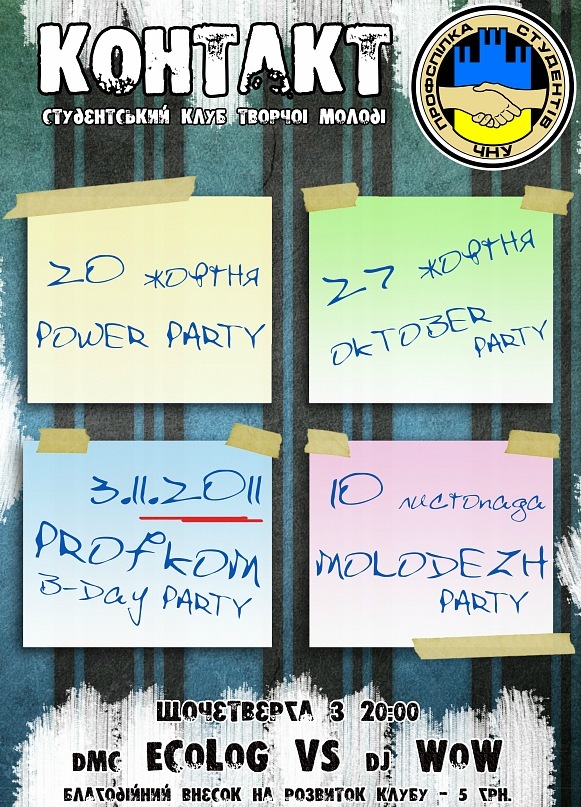 КОНТАКТ
СТУДЕНТСЬКИЙ КЛУБ ТВОРЧОЇ МОЛОДІ
ПРОФСПІЛКА СТУДЕНТІВ
ЧНУ
20 жовтня
POWER PARTY
27 жовтня
OKTOBER
PARTY
3.11.2011
PROfKOM
B-Day PARTY
10 листопада
MOLODEZH
PARTY
ЩОЧЕТВЕРГА З 20:00
DMC ECOLOG VS DJ WOW
БЛАГОДІЙНИЙ ВНЕСОК НА РОЗВИТОК КЛУБУ - 5 ГРН.